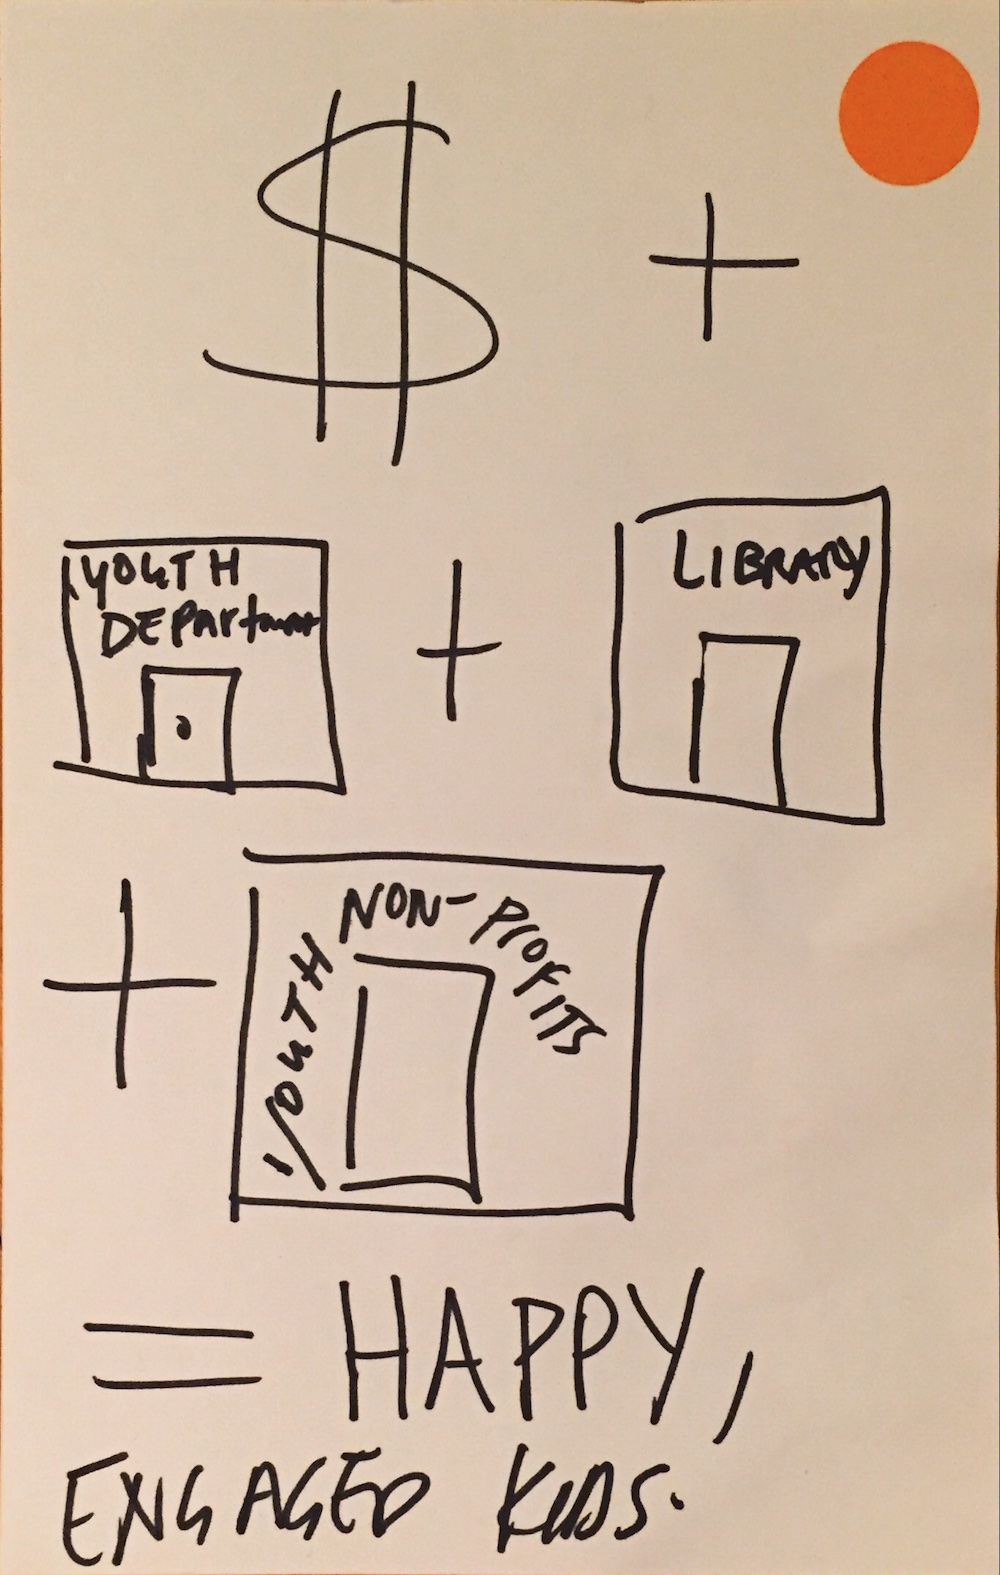 $ +
YOUTH
DEPArtment
+
LIBRARY
+
YOUTH NON-PROFITS
= HAPPY,
ENGAGED KIDS.